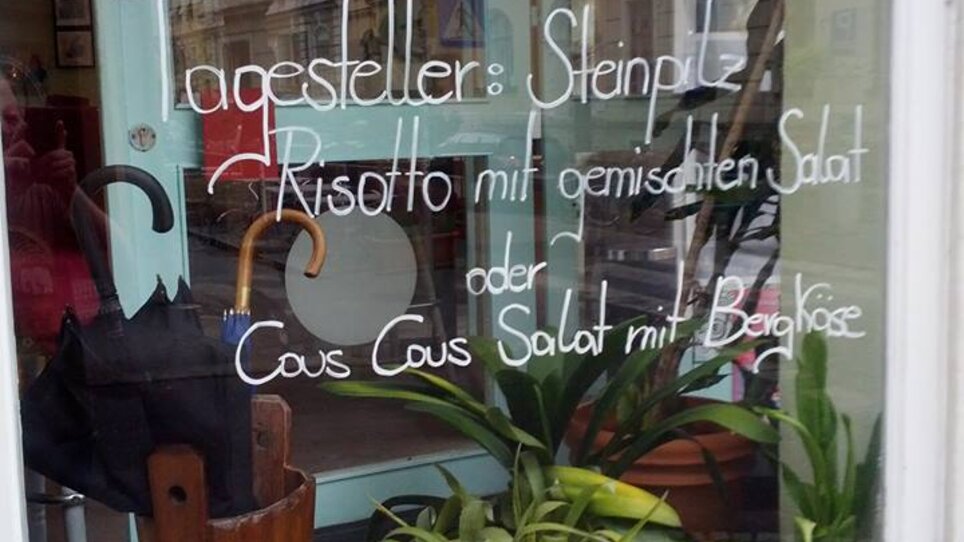 Tagesteller: Steinpilz
Risotto mit gemischten Salat
oder
Cous Cous Salat mit Bergkäse